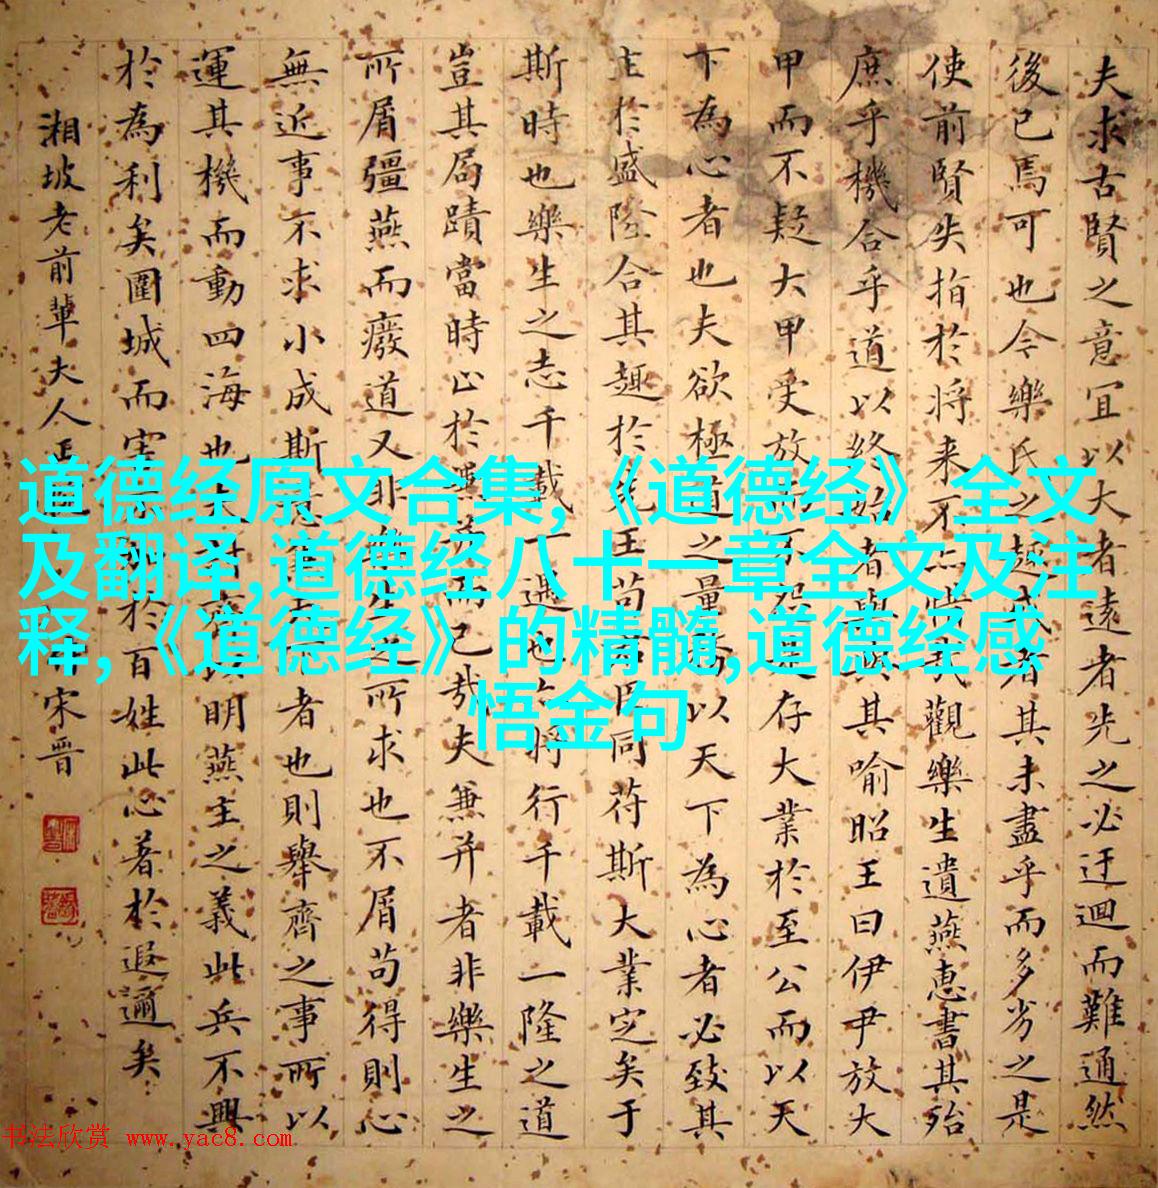 道德经原文合集,《道德经》全文
及翻译,道德经八十一章全文及注
释,《道德经》的精髓,道德经感
悟金句
夫求古賢之意宜以大者遠者先之必迂迴而難通然
後已焉可也今樂氏之趣或者其未盡乎而多劣之是
使前賢失指於將来不亦惜哉觀樂生遺燕惠書其殆
庶乎機合乎道以終始者與其喻昭王曰伊尹放大
甲而不疑大甲受放而不怨是存大業於至公而以天
下為心者也夫欲極道之量務以天下為心者必致其
主於盛隆合其趣於先王苟君臣同符斯大業定矣于
斯時也樂生之志千載一遇也亦將行千載一隆之道
豈其局蹟當時止於而已哉夫兼并者非樂生之
所屑彊燕而廢道又非樂生之所求也不屑苟得則心
無近事不求小成斯意者也則舉齊之事所以
運其機而動四海也夫討齊以明燕主之義此兵不興
於為利矣圍城而害不加於百姓此心著於遐邇矣
湘坡老前輩夫人正
宋晋
书法欣赏 www.yac8.com